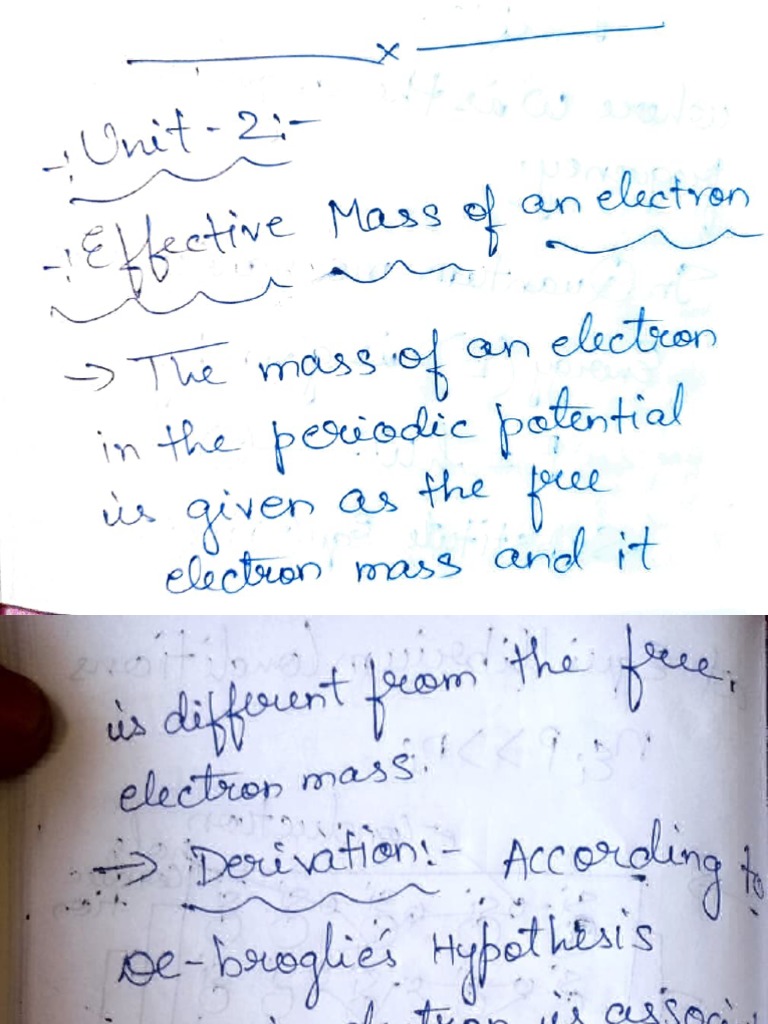 x
-: Unit - 2:-
-: Effective Mass of an electron
→ The mass of an electron
in the periodic potential
is given as the free
electron mass and it
is different from the free
electron mass.
→ Derivation:- According to
De-broglie's Hypothesis
electron is associ